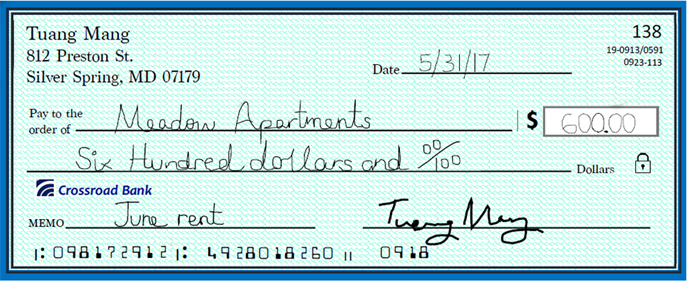 Tuang Mang
138
812 Preston St.
19-0913/0591
Silver Spring, MD 07179
0923-113
Date 5/31/17
Pay to the
order of Meadow Apartments $ 600.00
Six Hundred dollars and 00/100 Dollars
Crossroad Bank
MEMO June rent Tuang Mang
⑆098172912⑆ 4928018260⑈ 0918